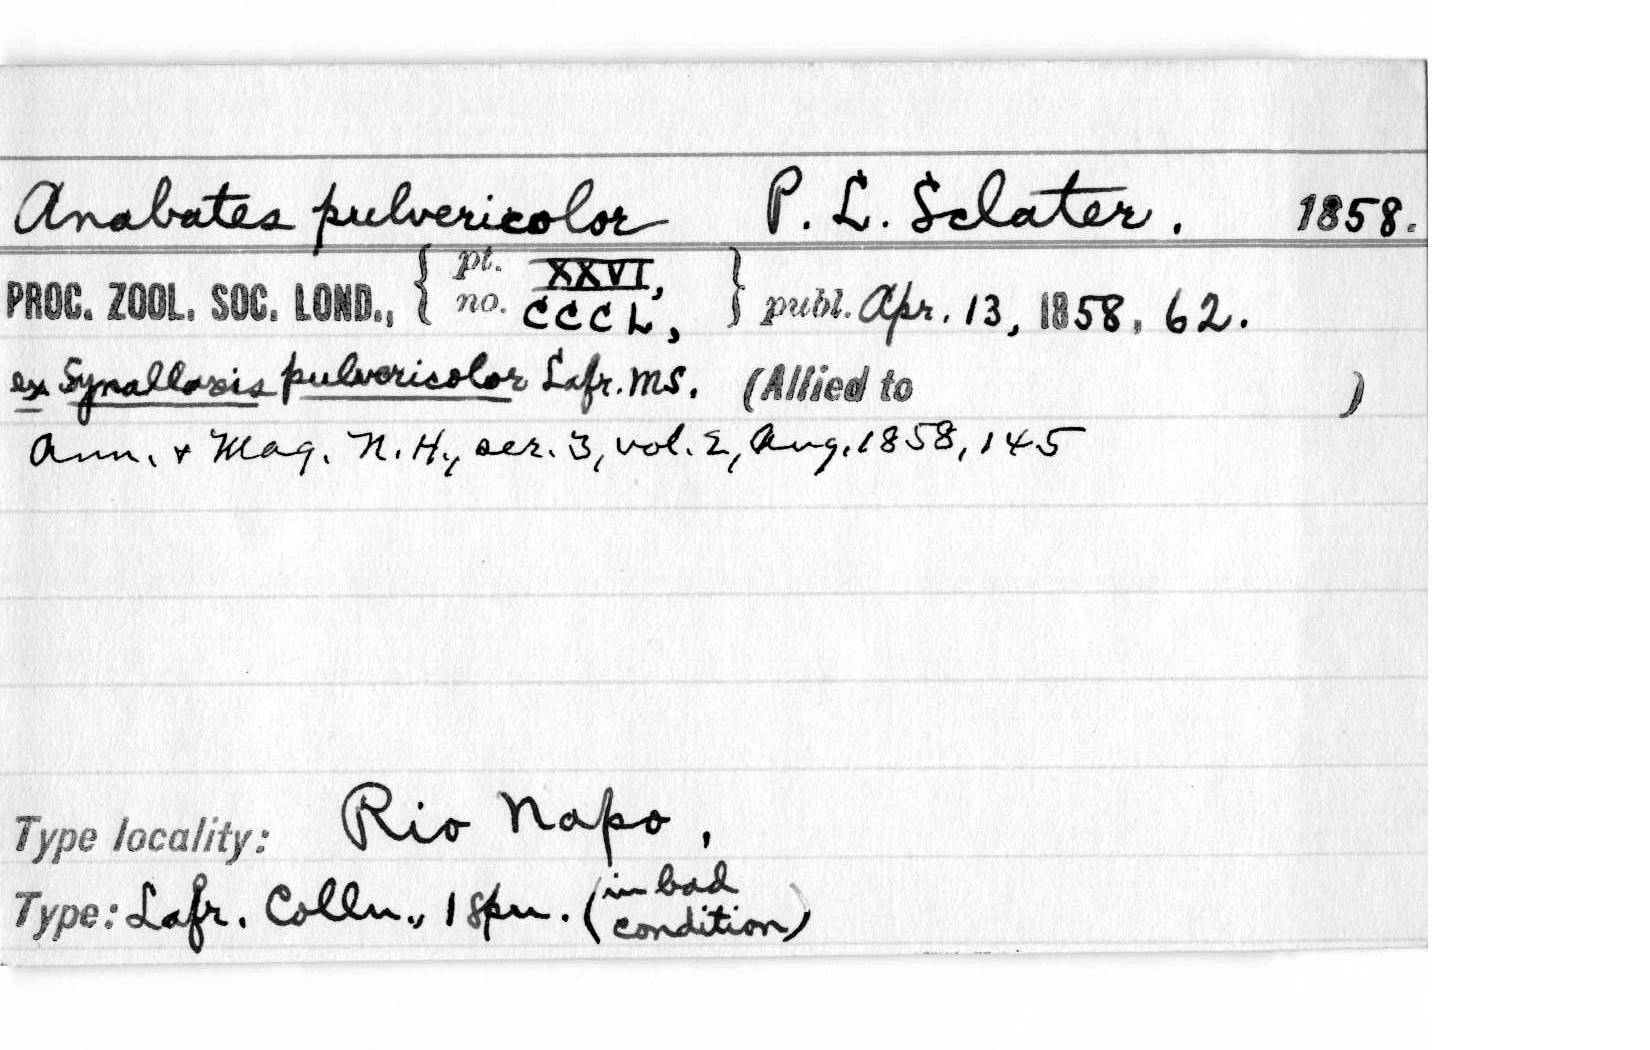 Anabates pulvericolor P. L. Sclater. 1858.
PROC. ZOOL. SOC. LOND., { pt. XXVI, no. CCCL, } publ. Apr. 13, 1858, 62.
ex Synallaxis pulvericolor Lafr. MS. (Allied to )
Ann. + Mag. N. H., ser. 3, vol. 2, Aug. 1858, 145
Type locality: Rio Napo,
Type: Lafr. Colln., 1 spn. (in bad condition)